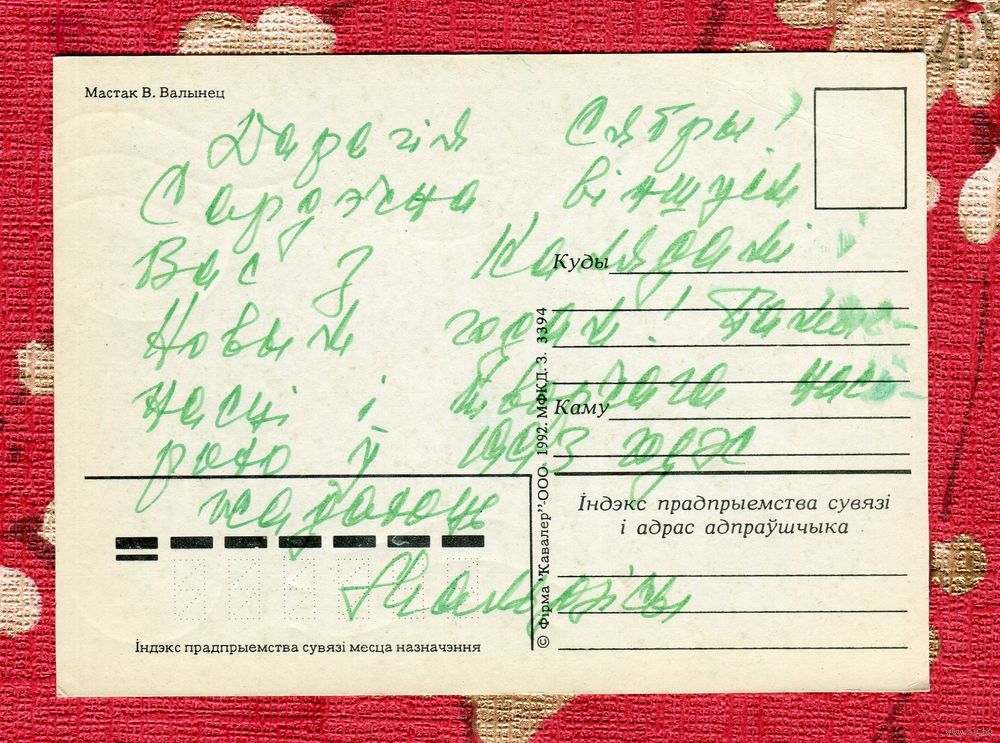 Мастак В. Валынец
Дарагія Сябры!
Сардэчна віншуем
Вас з Калядамі і
Новым годам!
насці і
у 1993 годзе
жадаюць
Куды
Каму
© Фірма "Кавалер"-ООО. 1992. МФКД. З. 3394
Індэкс прадпрыемства сувязі
і адрас адпраўшчыка
Індэкс прадпрыемства сувязі месца назначэння